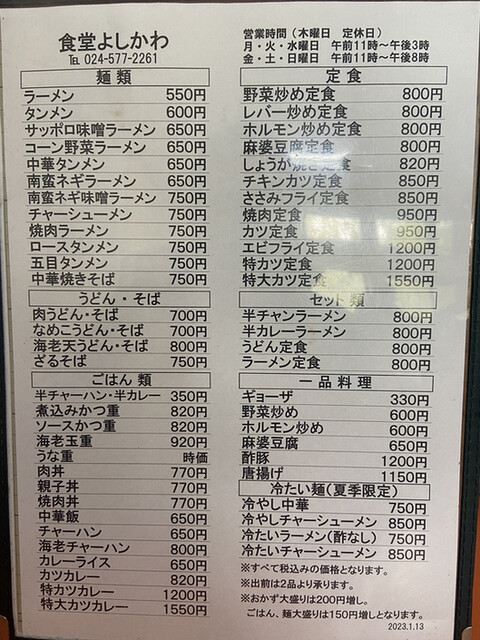 食堂よしかわ
TEL 024-577-2261
営業時間（木曜日　定休日）
月・火・水曜日　午前11時～午後3時
金・土・日曜日　午前11時～午後8時
麺類
ラーメン 550円
タンメン 600円
サッポロ味噌ラーメン 650円
コーン野菜ラーメン 650円
中華タンメン 650円
南蛮ネギラーメン 650円
南蛮ネギ味噌ラーメン 750円
チャーシューメン 750円
焼肉ラーメン 750円
ロースタンメン 750円
五目タンメン 750円
中華焼きそば 750円
うどん・そば
肉うどん・そば 700円
なめこうどん・そば 700円
海老天うどん・そば 800円
ざるそば 750円
ごはん類
半チャーハン・半カレー 350円
煮込みかつ重 820円
ソースかつ重 820円
海老玉重 920円
うな重 時価
肉丼 770円
親子丼 770円
焼肉丼 770円
中華飯 650円
チャーハン 650円
海老チャーハン 800円
カレーライス 650円
カツカレー 820円
特カツカレー 1200円
特大カツカレー 1550円
定食
野菜炒め定食 800円
レバー炒め定食 800円
ホルモン炒め定食 800円
麻婆豆腐定食 800円
しょうが焼き定食 820円
チキンカツ定食 850円
ささみフライ定食 850円
焼肉定食 950円
カツ定食 950円
エビフライ定食 1200円
特カツ定食 1200円
特大カツ定食 1550円
セット類
半チャンラーメン 800円
半カレーラーメン 800円
うどん定食 800円
ラーメン定食 800円
一品料理
ギョーザ 330円
野菜炒め 600円
ホルモン炒め 600円
麻婆豆腐 650円
酢豚 1200円
唐揚げ 1150円
冷たい麺（夏季限定）
冷やし中華 750円
冷やしチャーシューメン 850円
冷たいラーメン（酢なし） 750円
冷たいチャーシューメン 850円
※すべて税込みの価格となります。
※出前は2品より承ります。
※おかず大盛りは200円増し。
ごはん、麺大盛りは150円増しとなります。
2023.1.13